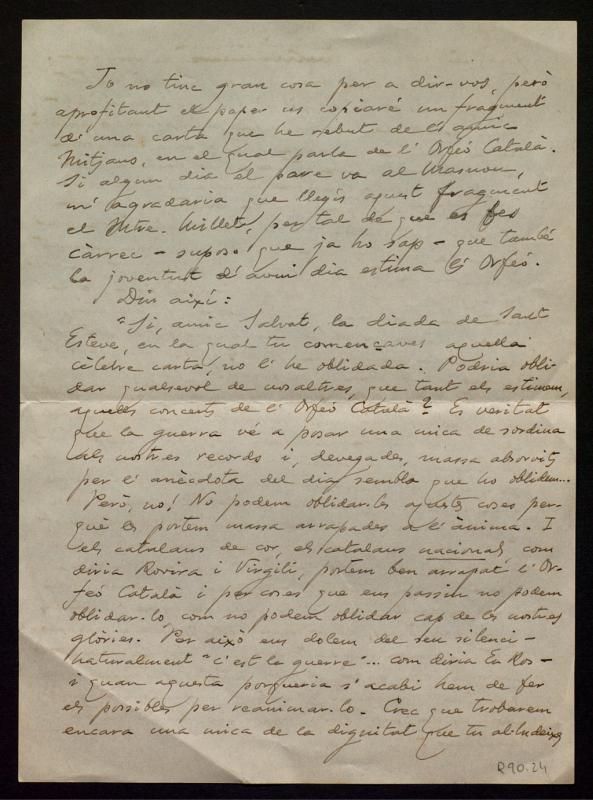 Jo no tinc gran cosa per a dir-vos, però
aprofitant el paper us copiaré un fragment
d'una carta que he rebut de l'amic
Mitjans, en el qual parla de l'Orfeó Català.
Si algun dia el pare va al Masnou,
m'agradaria que llegís aquest fragment
el Mtre. Millet, per tal de que es fes
càrrec - suposo que ja ho sap - que també
la joventut d'avui dia estima l'Orfeó.
Diu així:
"Si, amic Salvat, la diada de Sant
Esteve, en la qual tu començaves aquella
cèlebre carta, no l'he oblidada. Podria obli-
dar qualsevol de nosaltres, que tant els estimem,
aquells concerts de l'Orfeó Català? Es veritat
que la guerra vé a posar una mica de sordina
als nostres records i, devegades, massa absorvits
per l'anècdota del dia sembla que ho oblidem...
Però, no! No podem oblidar-les aquestes coses per-
què les portem massa arrapades a l'ànima. I
els catalans de cor, els catalans nacionals com
diria Rovira i Virgili, portem ben arrapat l'Or-
feó Català i per coses que ens passin no podem
oblidar-lo, com no podem oblidar cap de les nostres
glòries. Per això ens dolem del seu silenci -
naturalment "c'est la guerre"... com diria En Ros -
i quan aquesta porqueria s'acabi hem de fer
els possibles per reanimar-lo. Crec que trobarem
encara una mica de la dignitat que tu al·ludeixes
R90.24